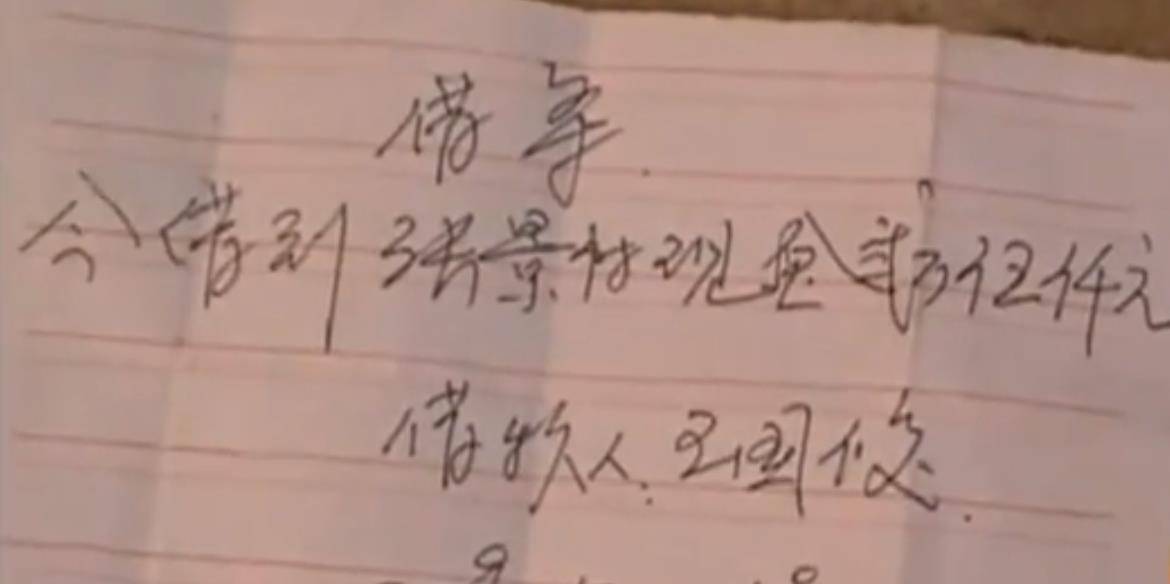 借条.
今借到张景村现金贰万伍仟元
借款人:王国俊.